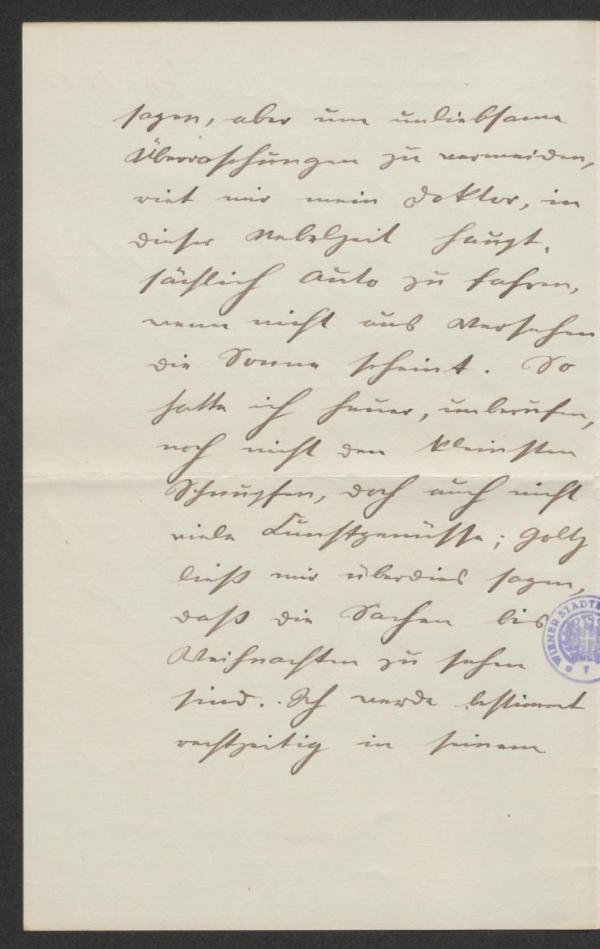 sagen, aber um unliebsame
Überraschungen zu vermeiden,
riet mir mein Doktor, in
dieser Nebelzeit haupt-
sächlich Auto zu fahren,
wenn nicht aus Versehen
die Sonne scheint. So
hatte ich heuer, unberufen,
noch nicht den kleinsten
Schnupfen, doch auch nicht
viele Kunstgenüsse; Goltz
ließ mir überdies sagen,
daß die Sachen bis
Weihnachten zu sehen
sind. Ich werde bestimmt
rechtzeitig in seinem
WIENER STADT